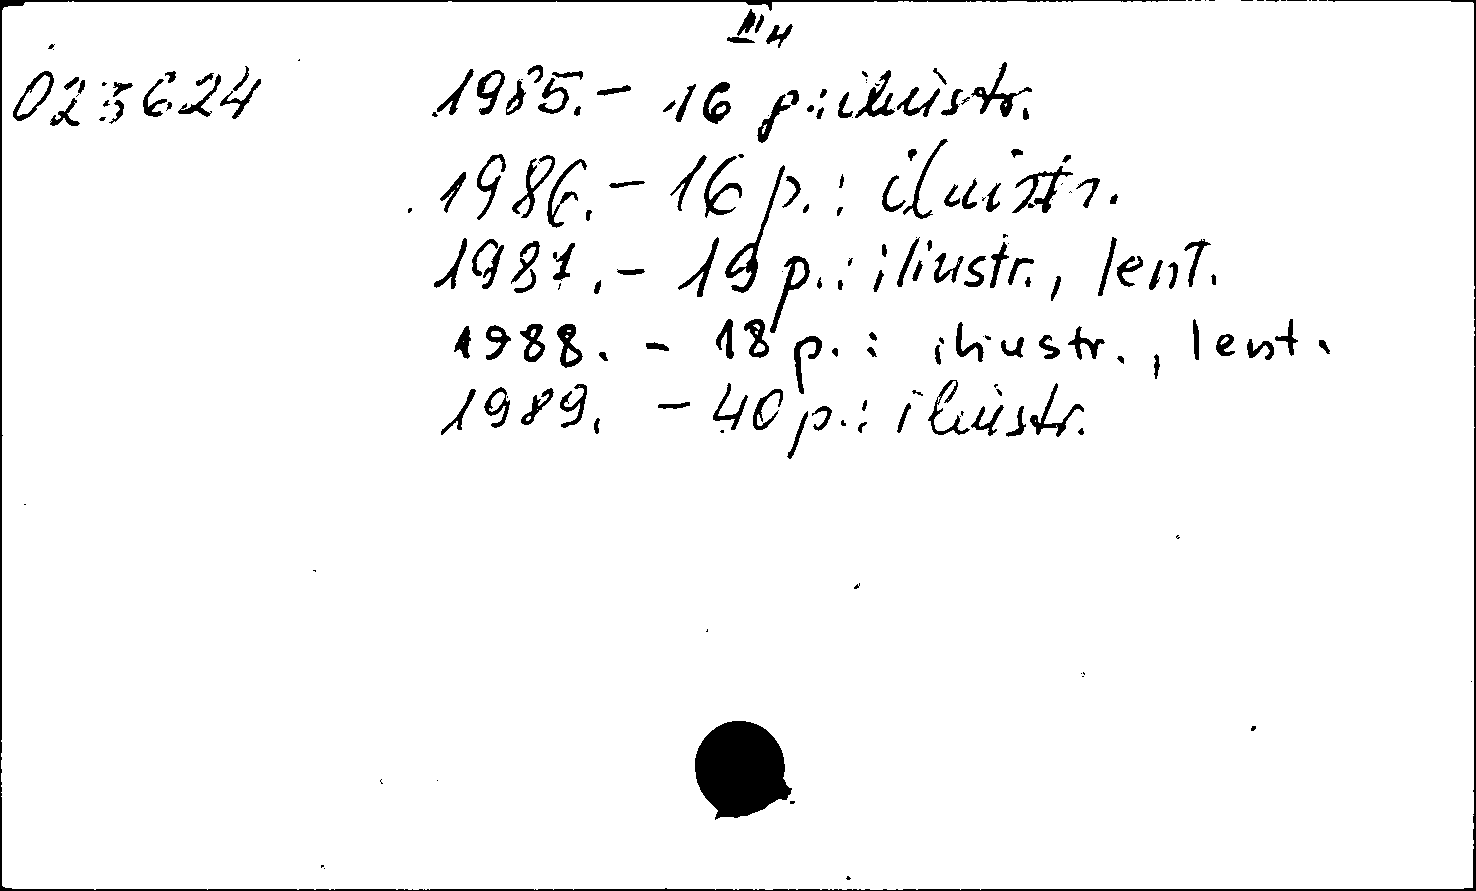 III 4
023624 1985.- 16 p.: iliustr.
1986.- 16 p.: iliustr.
1987.- 19 p.: iliustr., lent.
1988. - 18 p.: iliustr., lent.
1989. - 40 p.: iliustr.